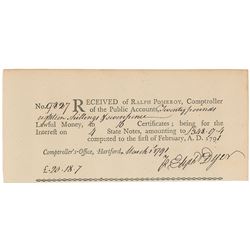 No. 17827 RECEIVED OF RALPH POMEROY, Comptroller
of the Public Accounts, Twenty pounds
eighteen Shillings & sevenpence
Lawful Money, in 6 Certificates; being for the
Interest on 4 State Notes, amounting to £348.9.4
computed to the first of February, A. D. 1791
Comptroller's-Office, Hartford, March 1 1791
£ 20.18.7 Dyer